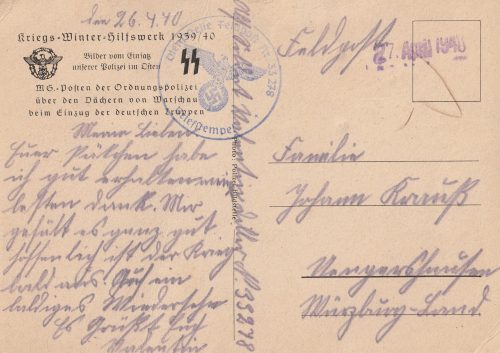 den 26.4.40
Kriegs-Winter-Hilfswerk 1939/40
Bilder vom Einsatz
unserer Polizei im Osten
MG.-Posten der Ordnungspolizei
über den Dächern von Warschau
beim Einzug der deutschen Truppen
Meine Lieben
Euer Päkchen habe
ich gut erhalten
besten dank. Mir
gefält es ganz gut
hoffenlich ist der Krieg
bald aus. Auf ein
baldiges Wiedersehn
Es Grüßt Euch
Valentin
Feldpost Nr. 33278
Briefstempel
Feldpost
27. April 1940
Familie
Johann Krauß
Ungershausen
Würzburg-Land.